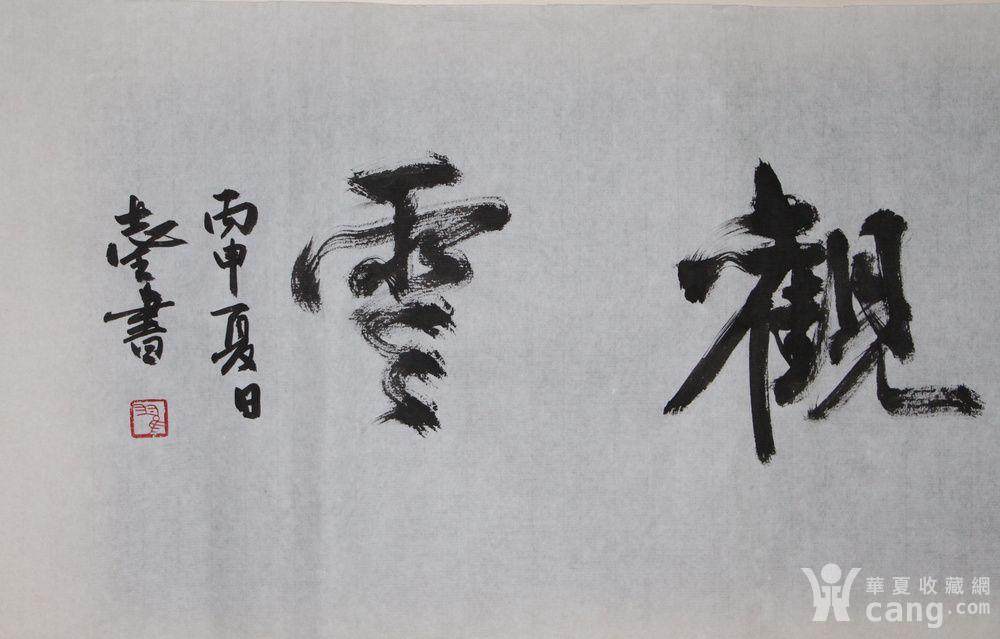 觀雲
丙申夏日
書
華夏收藏網
cang.com®